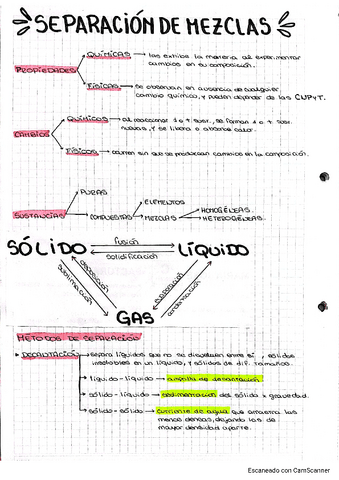 SEPARACIÓN DE MEZCLAS
PROPIEDADES
QUÍMICAS → las exhibe la materia al experimentar
cambios en su composición.
FÍSICAS → se observan en ausencia de cualquier
cambio químico, y pueden depender de las CNPYT.
CAMBIOS
QUÍMICOS → al reaccionar 1 o + sust., se forman 1 o + sust.
nuevas, y se libera o absorbe calor.
FÍSICOS → ocurren sin que se produzcan cambios en la composición.
SUSTANCIAS
PURAS
COMPUESTAS
ELEMENTOS
MEZCLAS
HOMOGÉNEAS.
HETEROGÉNEAS.
SÓLIDO
fusión
solidificación
LÍQUIDO
sublimación
condensación
GAS
METODOS DE SEPARACIÓN
DECANTACIÓN → separa líquidos que no se disuelven entre sí, sólidos
insolubles en un líquido, y sólidos de dif. tamaños.
líquido-líquido → ampolla de decantación.
sólido-líquido → sedimentación del sólido x gravedad.
sólido-sólido → corriente de agua que arrastra las
menos densas, dejando las de
mayor densidad aparte.
Escaneado con CamScanner